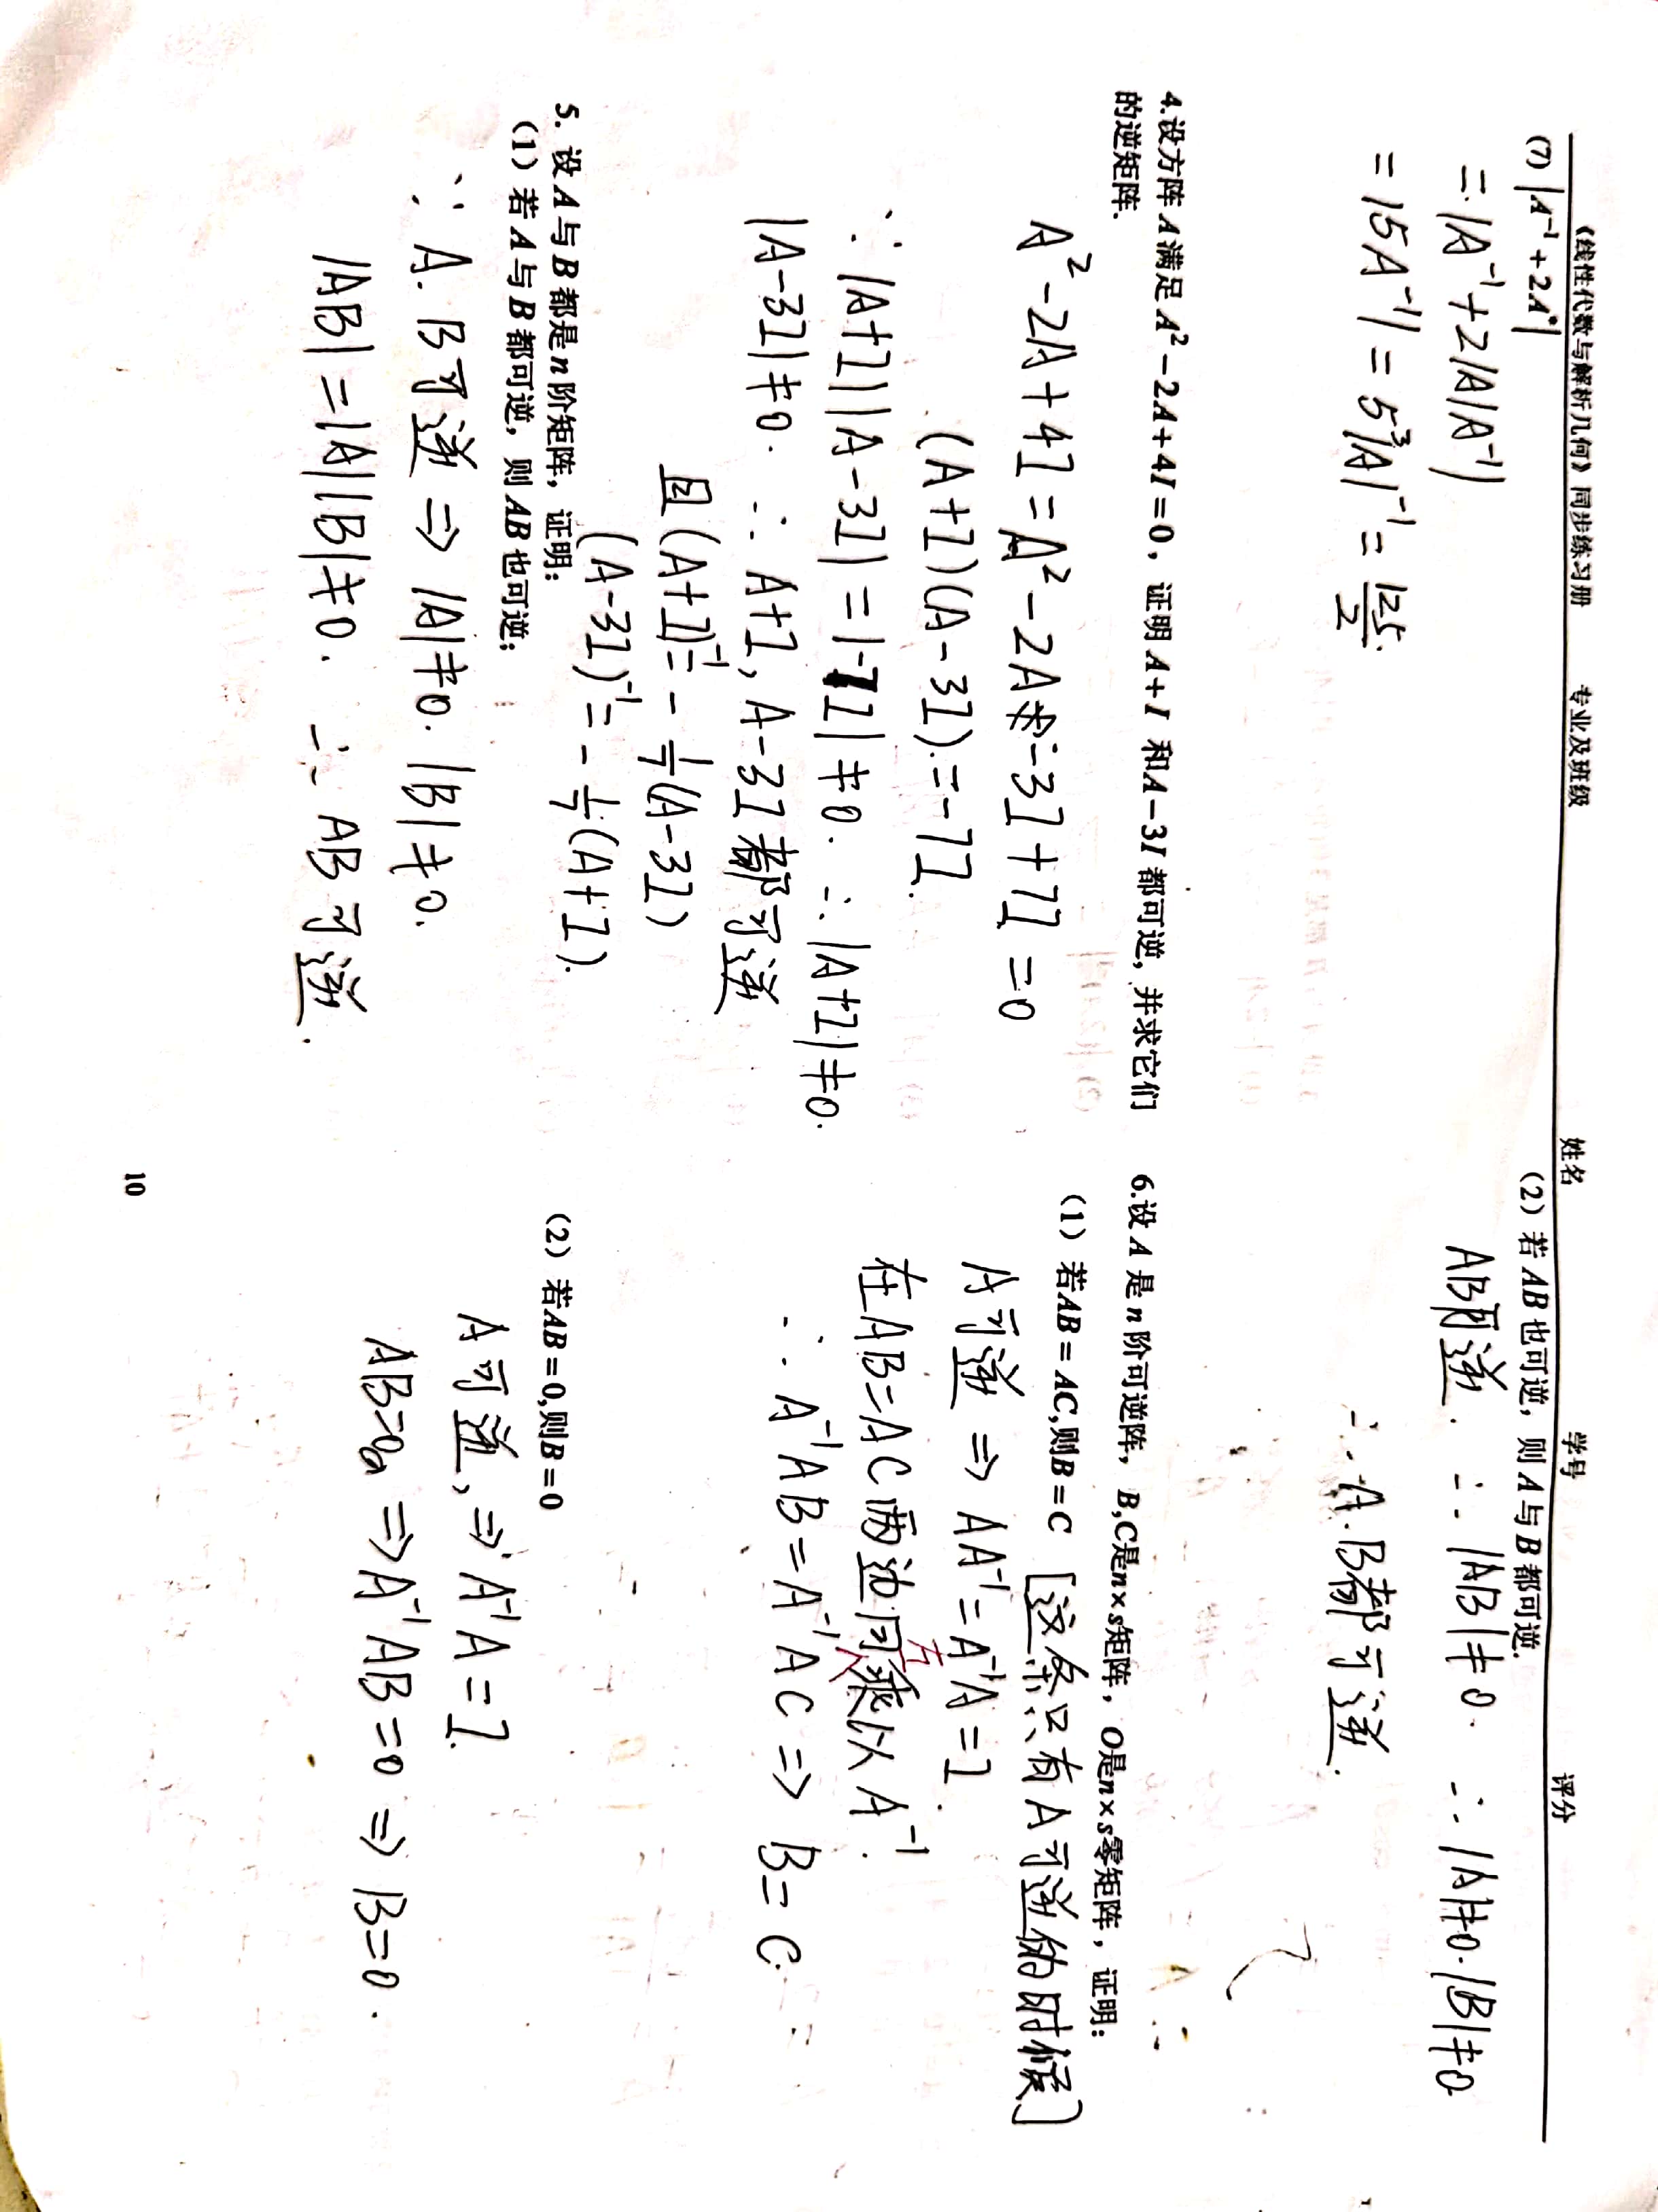 《线性代数与解析几何》同步练习册 专业及班级 姓名 学号 评分
(7) |A⁻¹+2A*|
= |A⁻¹+2|A|A⁻¹|
= |5A⁻¹| = 5³|A|⁻¹ = 125/2.
4.设方阵A满足A²-2A+4I=0，证明A+I和A-3I都可逆，并求它们
的逆矩阵.
A²-2A+4I = A²-2A-3I+7I = 0
(A+I)(A-3I) = -7I.
∵ |A+I||A-3I| = |-7I| ≠ 0. ∴ |A+I| ≠ 0.
|A-3I| ≠ 0. ∴ A+I, A-3I 都可逆
且 (A+I)⁻¹ = -1/7(A-3I)
(A-3I)⁻¹ = -1/7(A+I).
5. 设A与B都是n阶矩阵，证明：
（1）若A与B都可逆，则AB也可逆；
∵ A. B可逆 ⇒ |A|≠0. |B|≠0.
|AB| = |A||B| ≠ 0. ∴ AB可逆.
（2）若AB也可逆，则A与B都可逆.
AB可逆. ∴ |AB|≠0. ∴ |A|≠0. |B|≠0
∴ A.B都可逆.
6.设A是n阶可逆阵，B,C是n×s矩阵，O是n×s零矩阵，证明：
（1）若AB=AC,则B=C [这条只有A可逆的时候]
A可逆 ⇒ AA⁻¹ = A⁻¹A = I.
在AB=AC两边同左乘以A⁻¹.
∴ A⁻¹AB = A⁻¹AC ⇒ B=C.
（2）若AB=0,则B=0
A可逆, ⇒ A⁻¹A = I.
AB=0 ⇒ A⁻¹AB=0 ⇒ B=0.
10